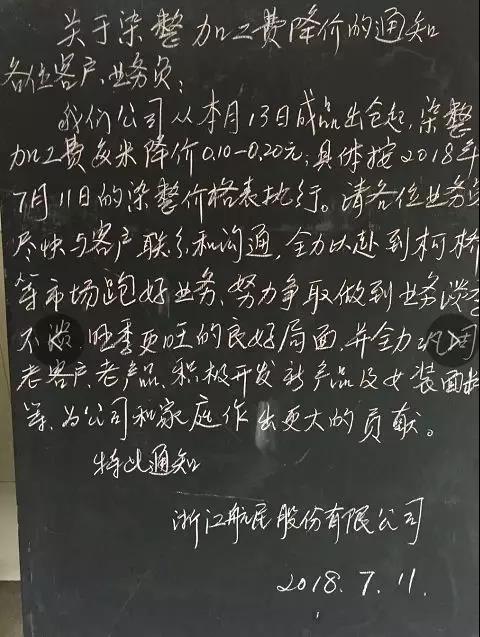 关于染整加工费降价的通知
各位客户、业务员:
我们公司从本月13日成品出仓起,染整
加工费每米降价0.10-0.20元,具体按2018年
7月11日的染整价格表执行。请各位业务员
尽快与客户联系和沟通,全力以赴到柯桥
等市场跑好业务、努力争取做到业务淡季
不淡,旺季更旺的良好局面,并全力巩固
老客户、老产品,积极开发新产品及女装面料
等,为公司和家庭作出更大的贡献。
特此通知
浙江航民股份有限公司
2018.7.11.